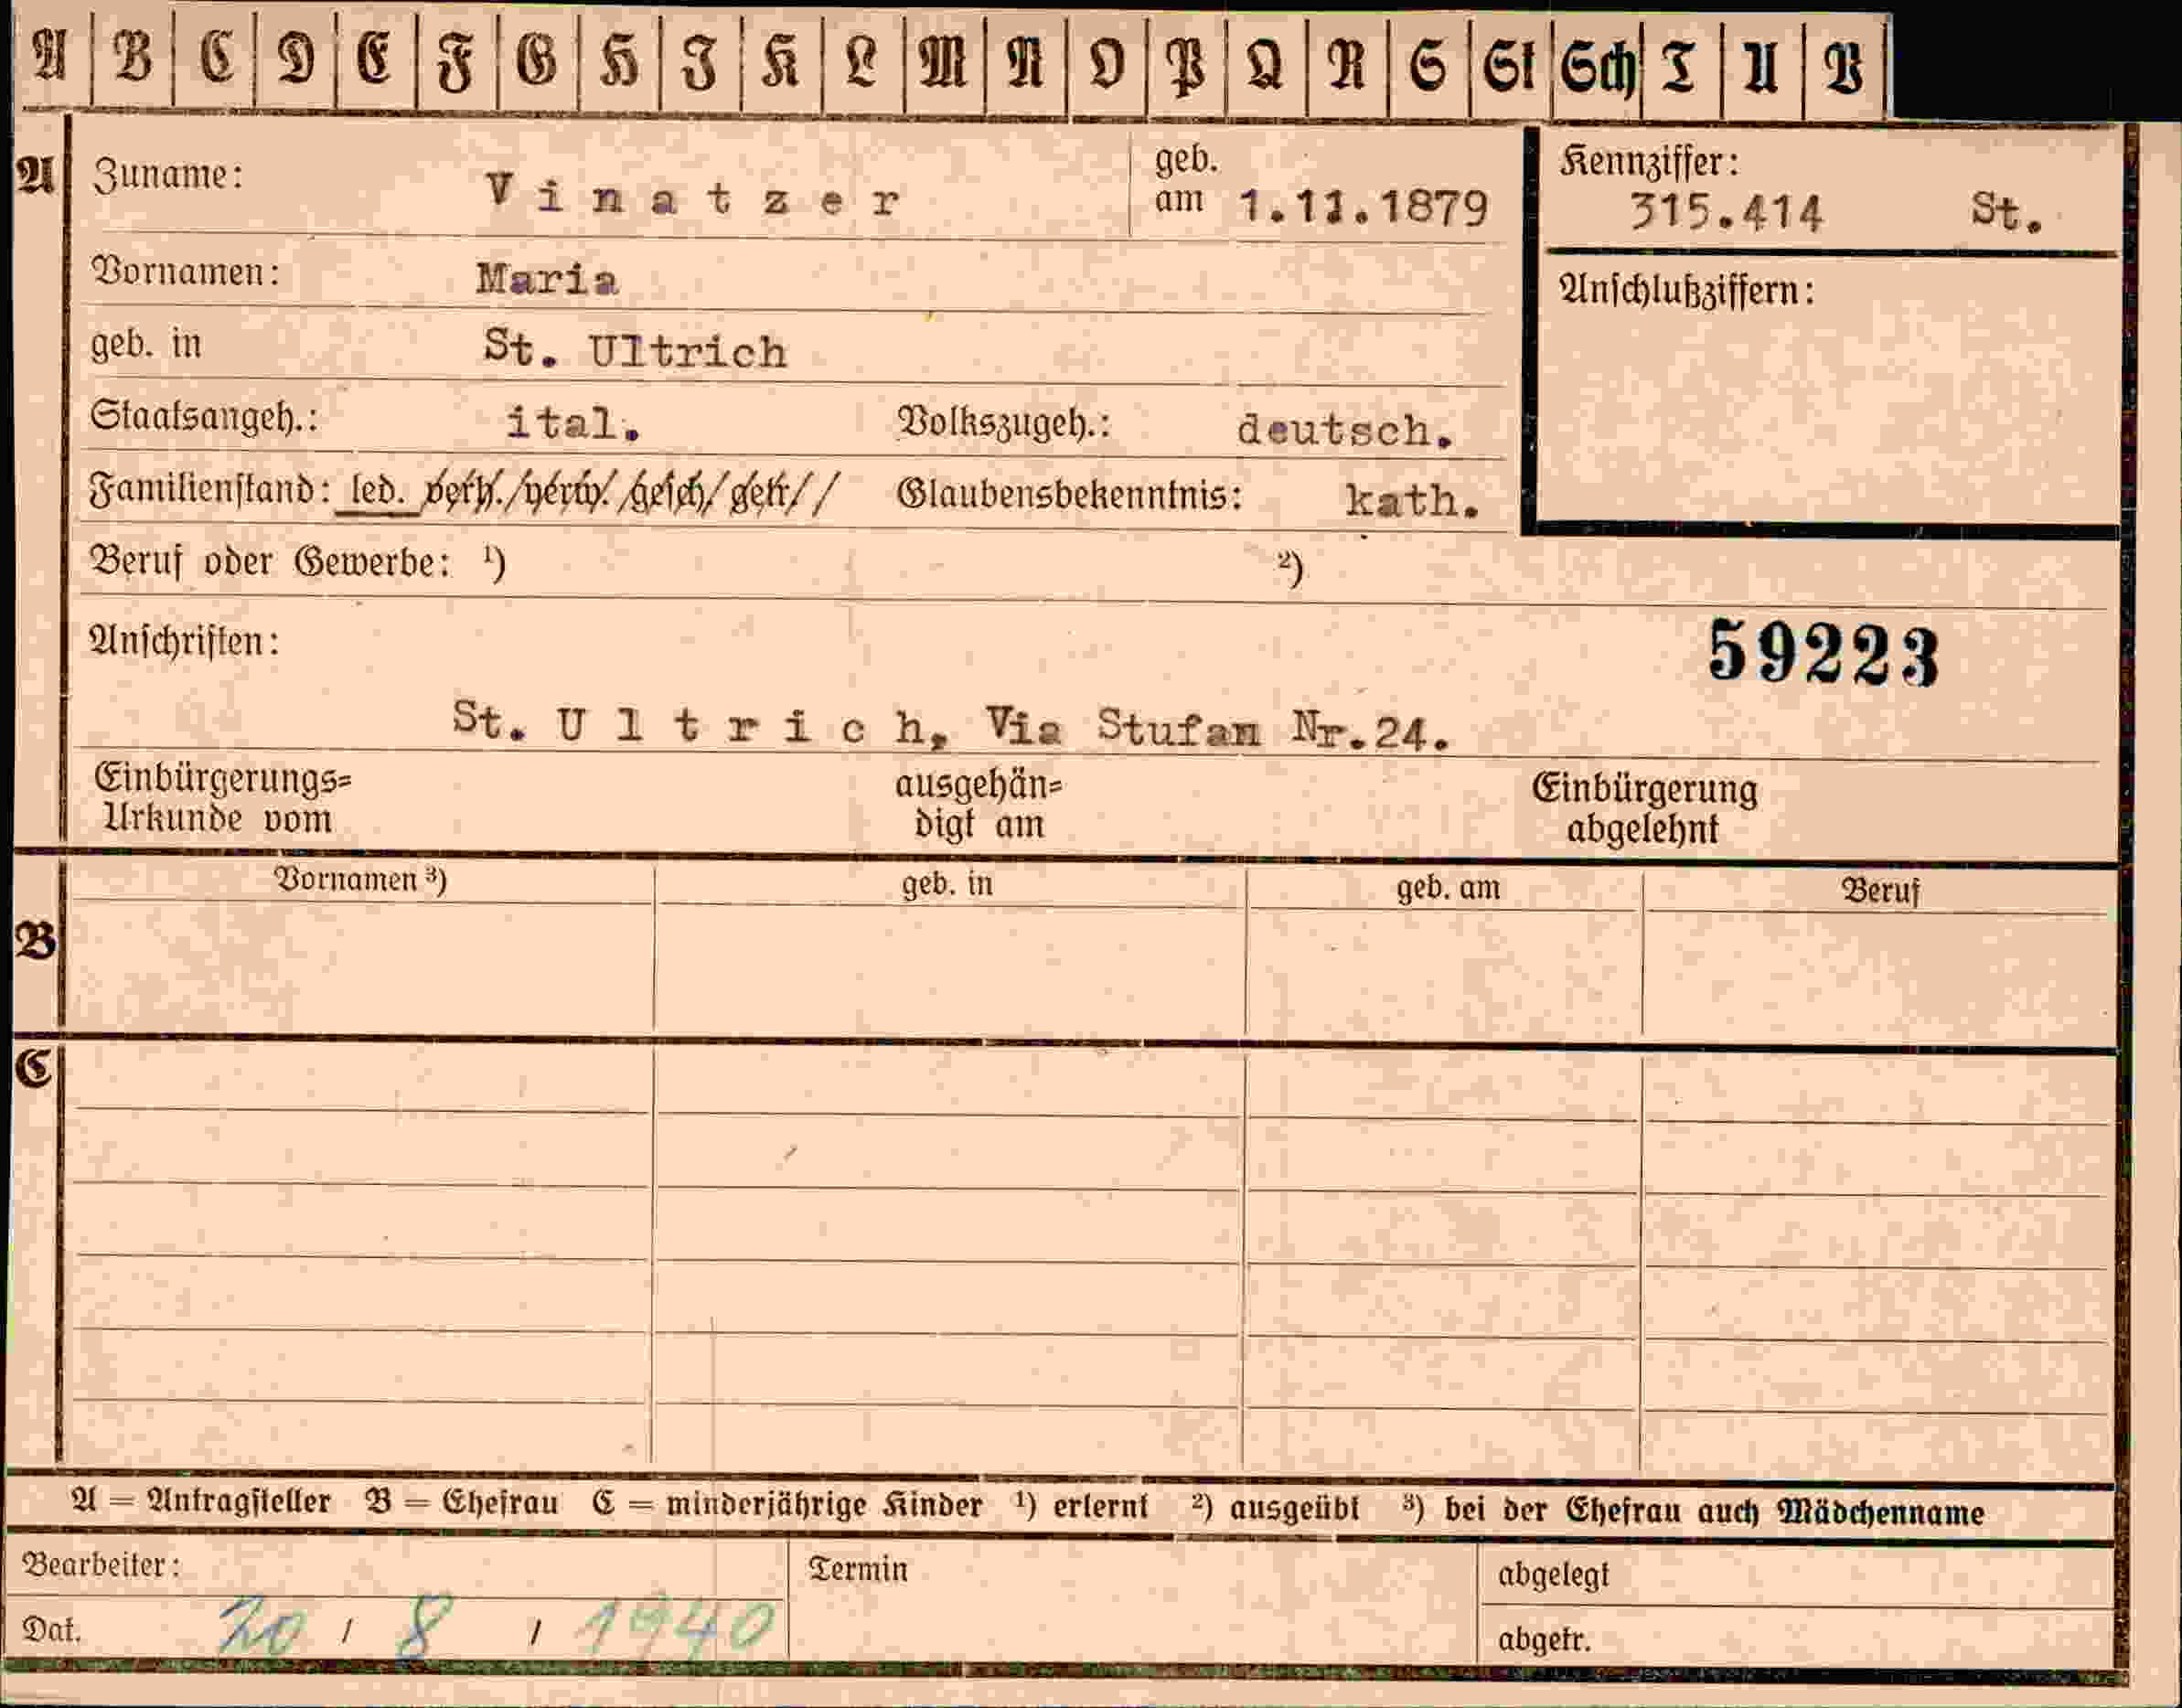 A B C D E F G H I K L M N O P Q R S St Sch T U V
A Zuname: Vinatzer geb. am 1.11.1879 Kennziffer: 315.414 St.
Vornamen: Maria Anschlußziffern:
geb. in St. Ultrich
Staatsangeh.: ital. Volkszugeh.: deutsch.
Familienstand: led. verh./verw./gesch/getr// Glaubensbekenntnis: kath.
Beruf oder Gewerbe: ¹) ²)
Anschriften: 59223
St. Ultrich, Via Stufan Nr.24.
Einbürgerungs= Urkunde vom ausgehän= digt am Einbürgerung abgelehnt
Vornamen ³) geb. in geb. am Beruf
B
C
A = Antragsteller B = Ehefrau C = minderjährige Kinder ¹) erlernt ²) ausgeübt ³) bei der Ehefrau auch Mädchenname
Bearbeiter: Termin abgelegt
Dat. 20 / 8 / 1940 abgetr.